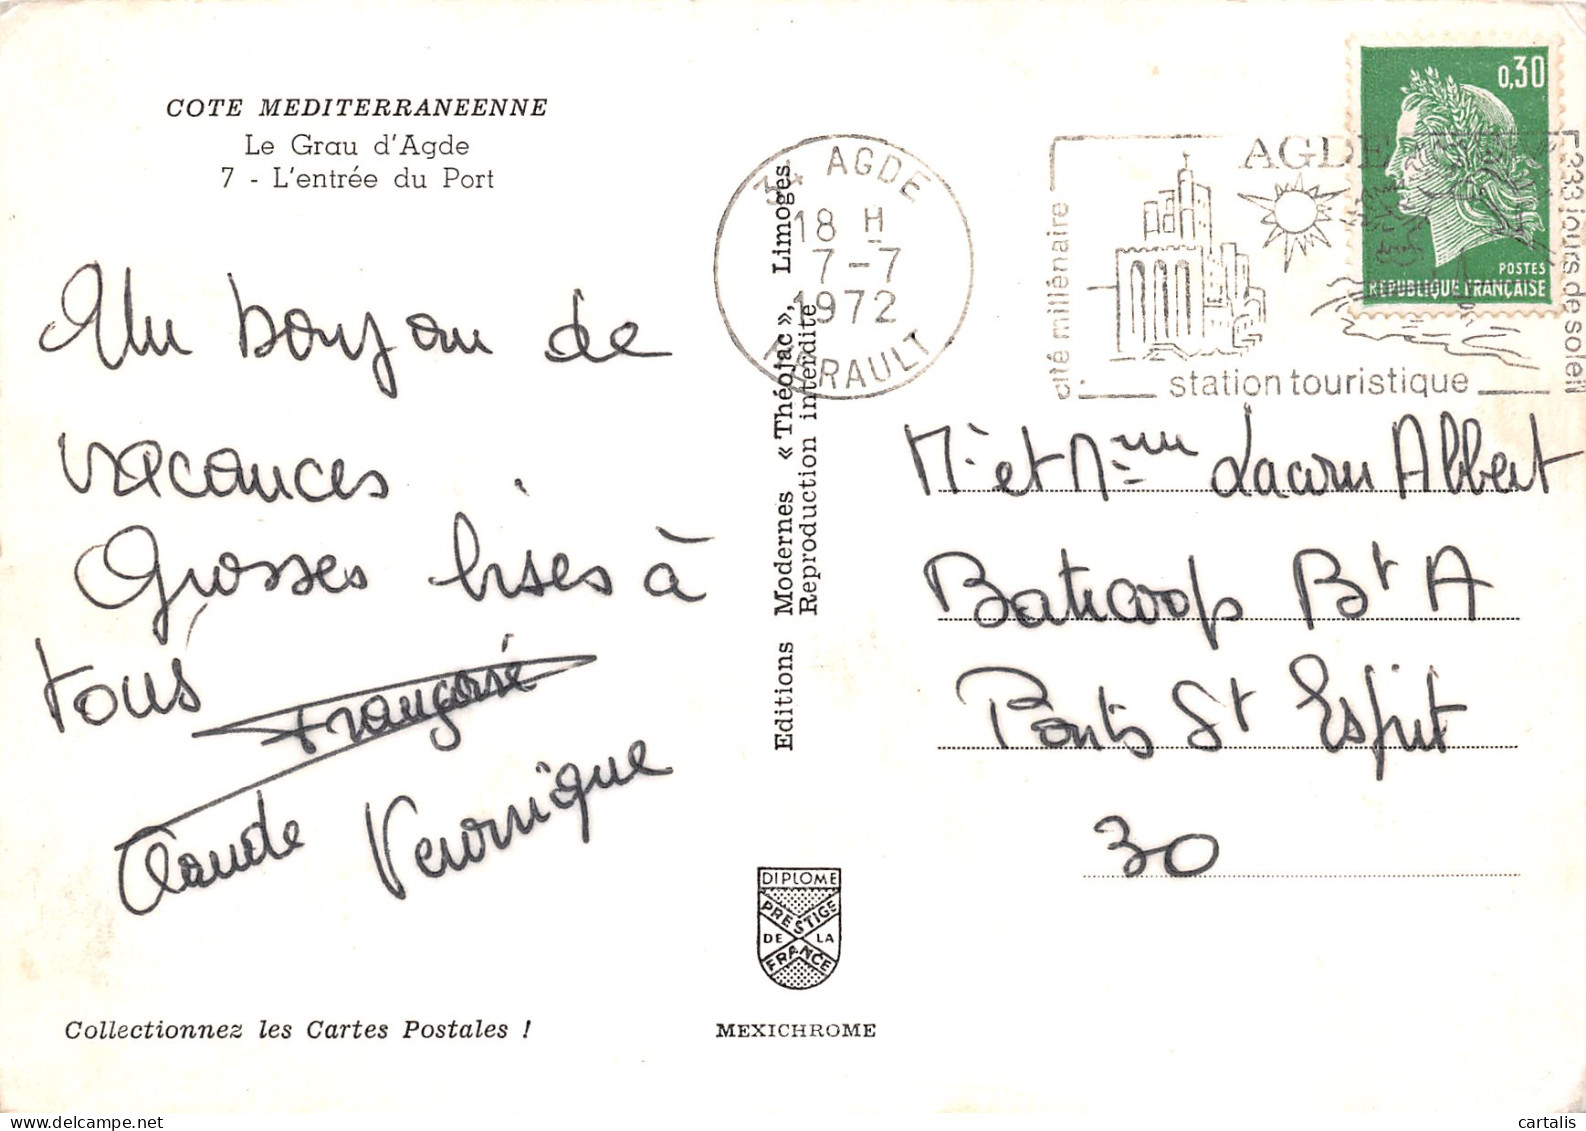 COTE MEDITERRANEENNE
Le Grau d'Agde
7 - L'entrée du Port
Un bonjour de
vacances.
Grosses bises à
tous
Françoise
Claude Veronique
Collectionnez les Cartes Postales !
Editions Modernes « Théojac », Limoges
Reproduction interdite
DIPLOME
PRESTIGE
DE LA
FRANCE
MEXICHROME
34 AGDE
18 H
7-7
1972
HERAULT
AGDE
cité millénaire
station touristique
333 jours de soleil
0,30
POSTES
REPUBLIQUE FRANÇAISE
Mr et Mme Albert
Baticoop Bt A
Ponts St Esprit
30
cartalis